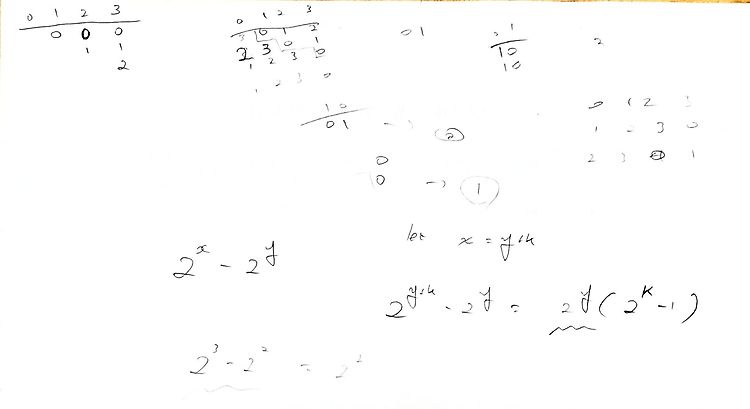 0 1 2 3
0 0 0
1 1
2
0 1 2 3
3 0 1 2
2 3 0 1
1 2 3 0
1 2 3 0
0 1
0 1
10
10
2
10
01 → 2
0
0 → 1
0 1 2 3
1 2 3 0
2 3 0 1
2^x - 2^y
let x = y+k
2^{y+k} - 2^y = 2^y (2^k - 1)
2^3 - 2^2 = 2^2